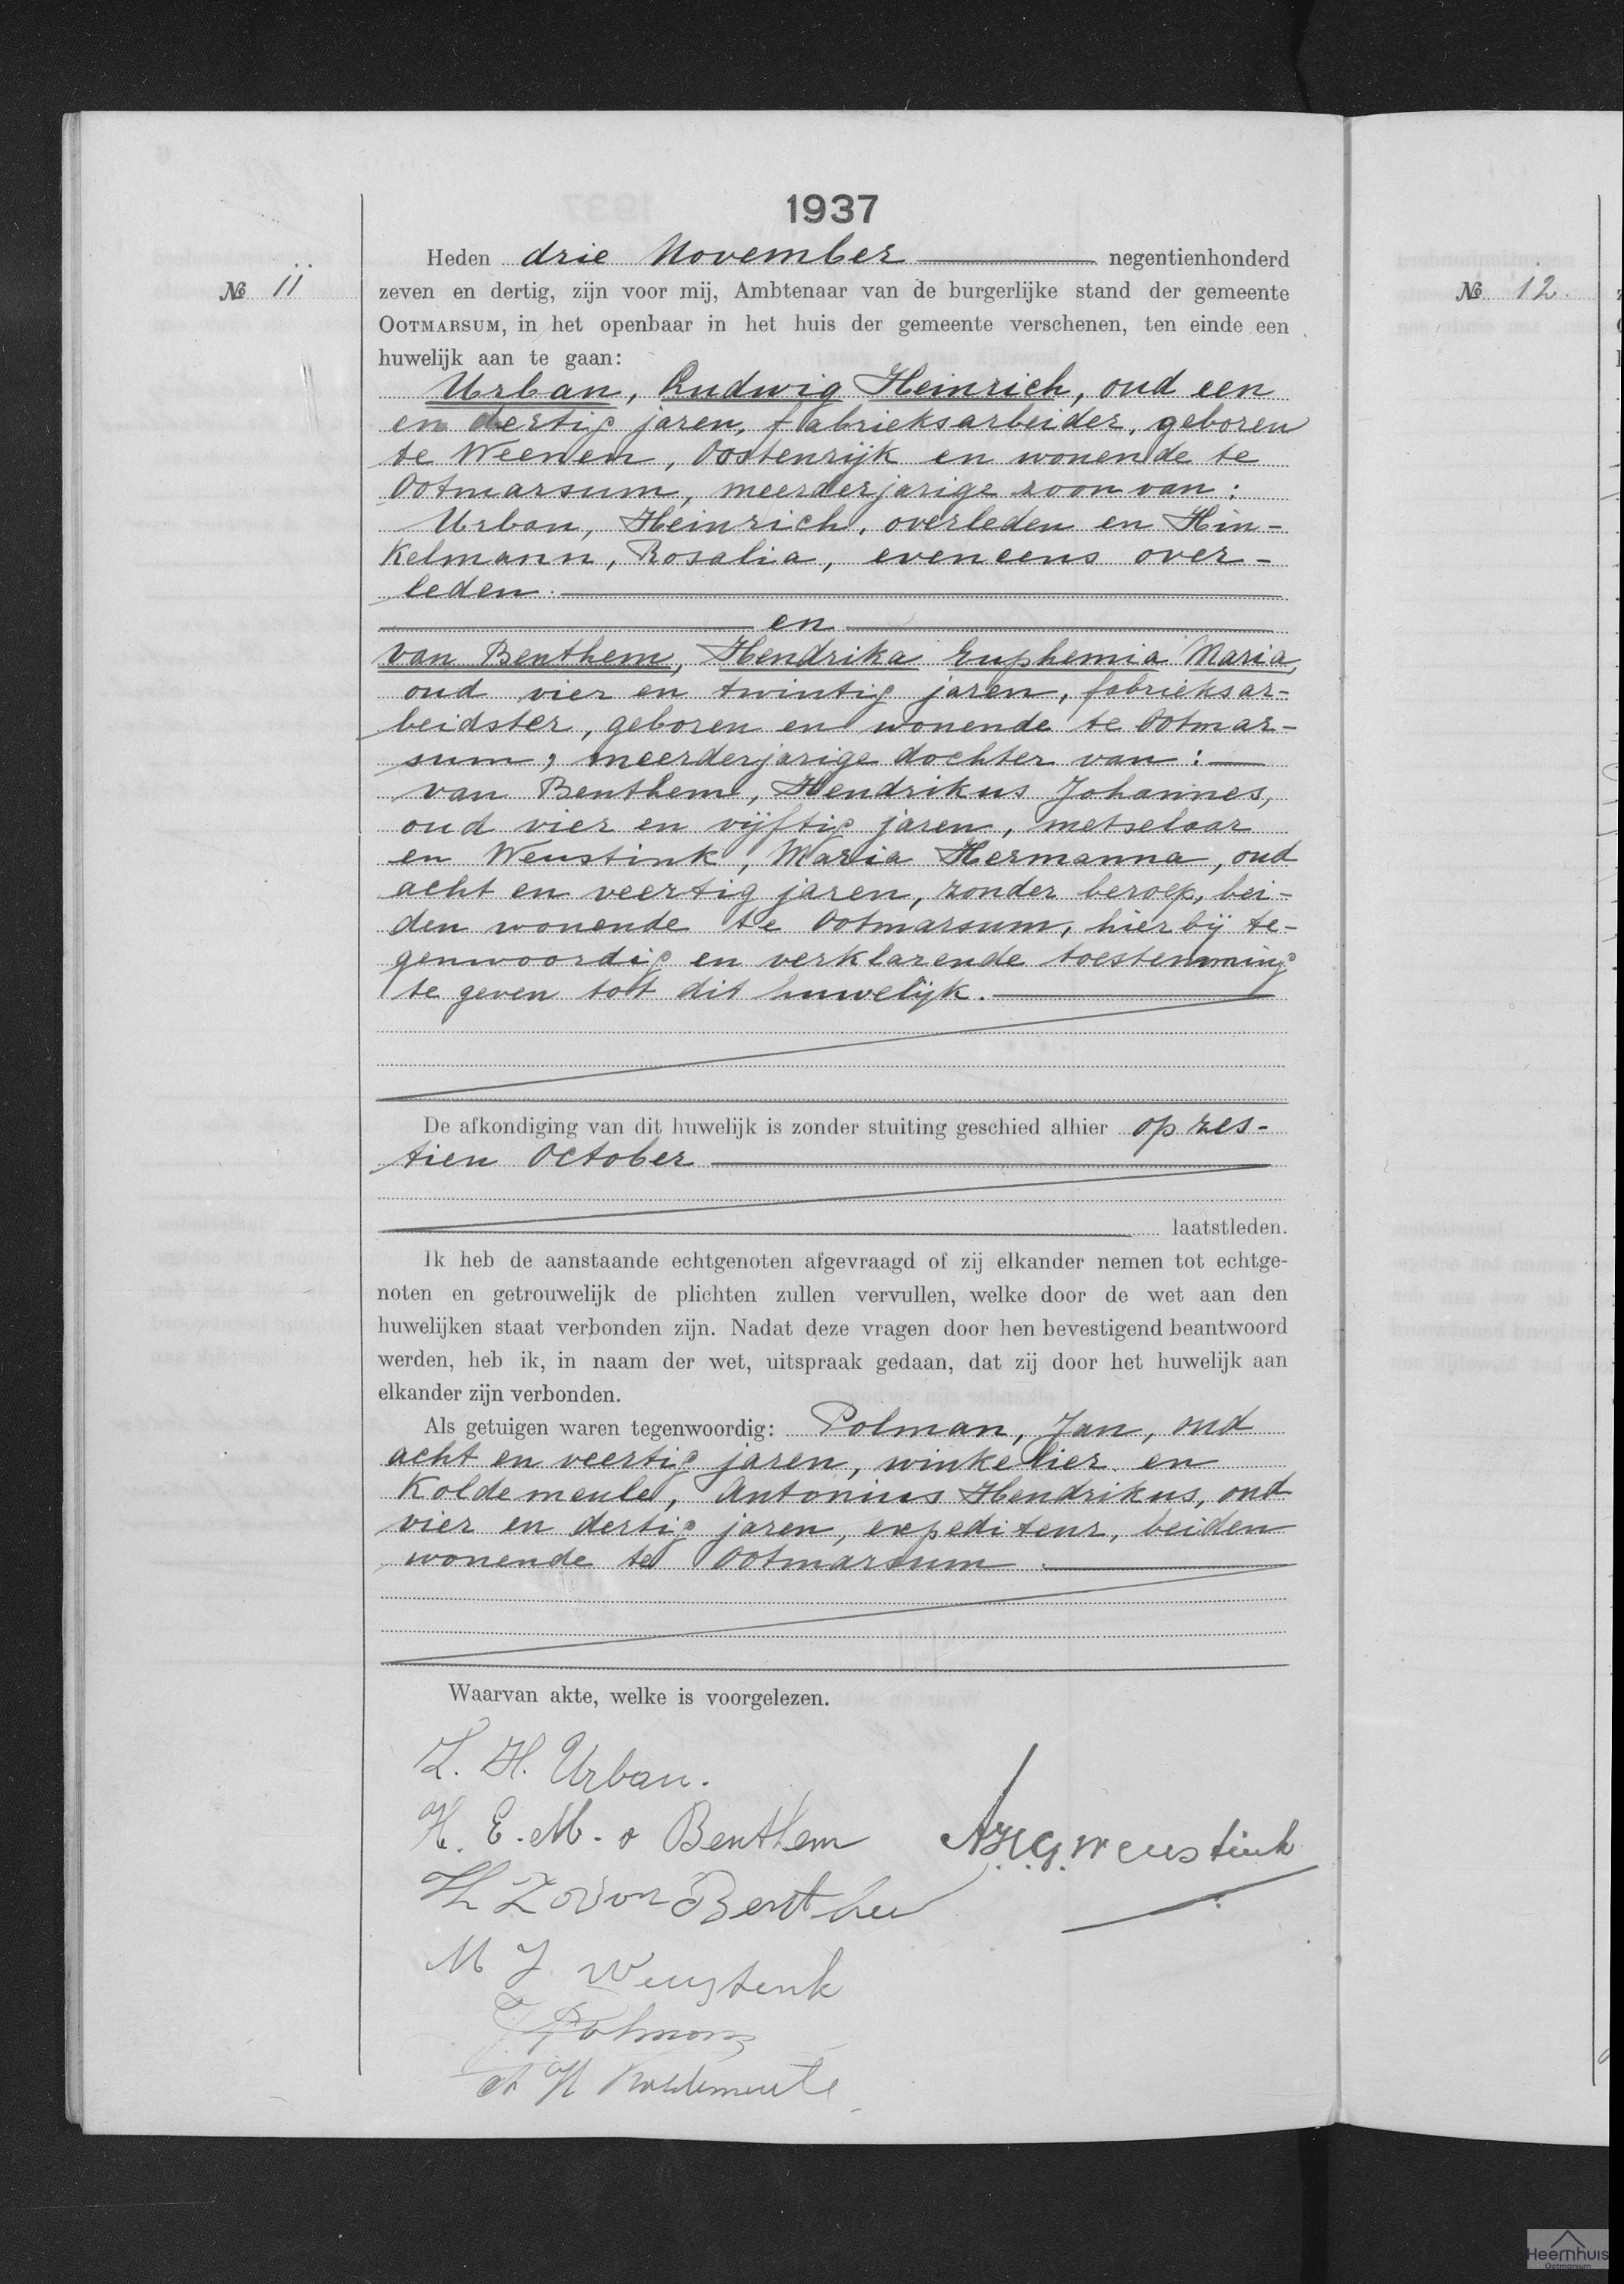 1937
Heden drie November negentienhonderd
№ 11
zeven en dertig, zijn voor mij, Ambtenaar van de burgerlijke stand der gemeente
OOTMARSUM, in het openbaar in het huis der gemeente verschenen, ten einde een
huwelijk aan te gaan:
Urban, Ludwig Heinrich, oud een
en dertig jaren, fabrieksarbeider, geboren
te Weenen, Oostenrijk en wonende te
Ootmarsum, meerderjarige zoon van:
Urban, Heinrich, overleden en Hin-
kelmann, Rosalia, eveneens over-
leden.
en
van Benthem, Hendrika Euphemia Maria,
oud vier en twintig jaren, fabrieksar-
beidster, geboren en wonende te Ootmar-
sum, meerderjarige dochter van:
van Benthem, Hendrikus Johannes,
oud vier en vijftig jaren, metselaar
en Weustink, Maria Hermanna, oud
acht en veertig jaren, zonder beroep, bei-
den wonende te Ootmarsum, hierbij te-
genwoordig en verklarende toestemming
te geven tot dit huwelijk.
De afkondiging van dit huwelijk is zonder stuiting geschied alhier op zes-
tien October
laatstleden.
Ik heb de aanstaande echtgenoten afgevraagd of zij elkander nemen tot echtge-
noten en getrouwelijk de plichten zullen vervullen, welke door de wet aan den
huwelijken staat verbonden zijn. Nadat deze vragen door hen bevestigend beantwoord
werden, heb ik, in naam der wet, uitspraak gedaan, dat zij door het huwelijk aan
elkander zijn verbonden.
Als getuigen waren tegenwoordig: Polman, Jan, oud
acht en veertig jaren, winkelier en
Koldemeule, Antonius Hendrikus, oud
vier en dertig jaren, expediteur, beiden
wonende te Ootmarsum.
Waarvan akte, welke is voorgelezen.
L. H. Urban.
H. E. M. v Benthem
A.H.G. Weustink
Benthem
M J. Weustenk
J Polman
A H Koldemeule
№ 12.
Heemhuis
Ootmarsum